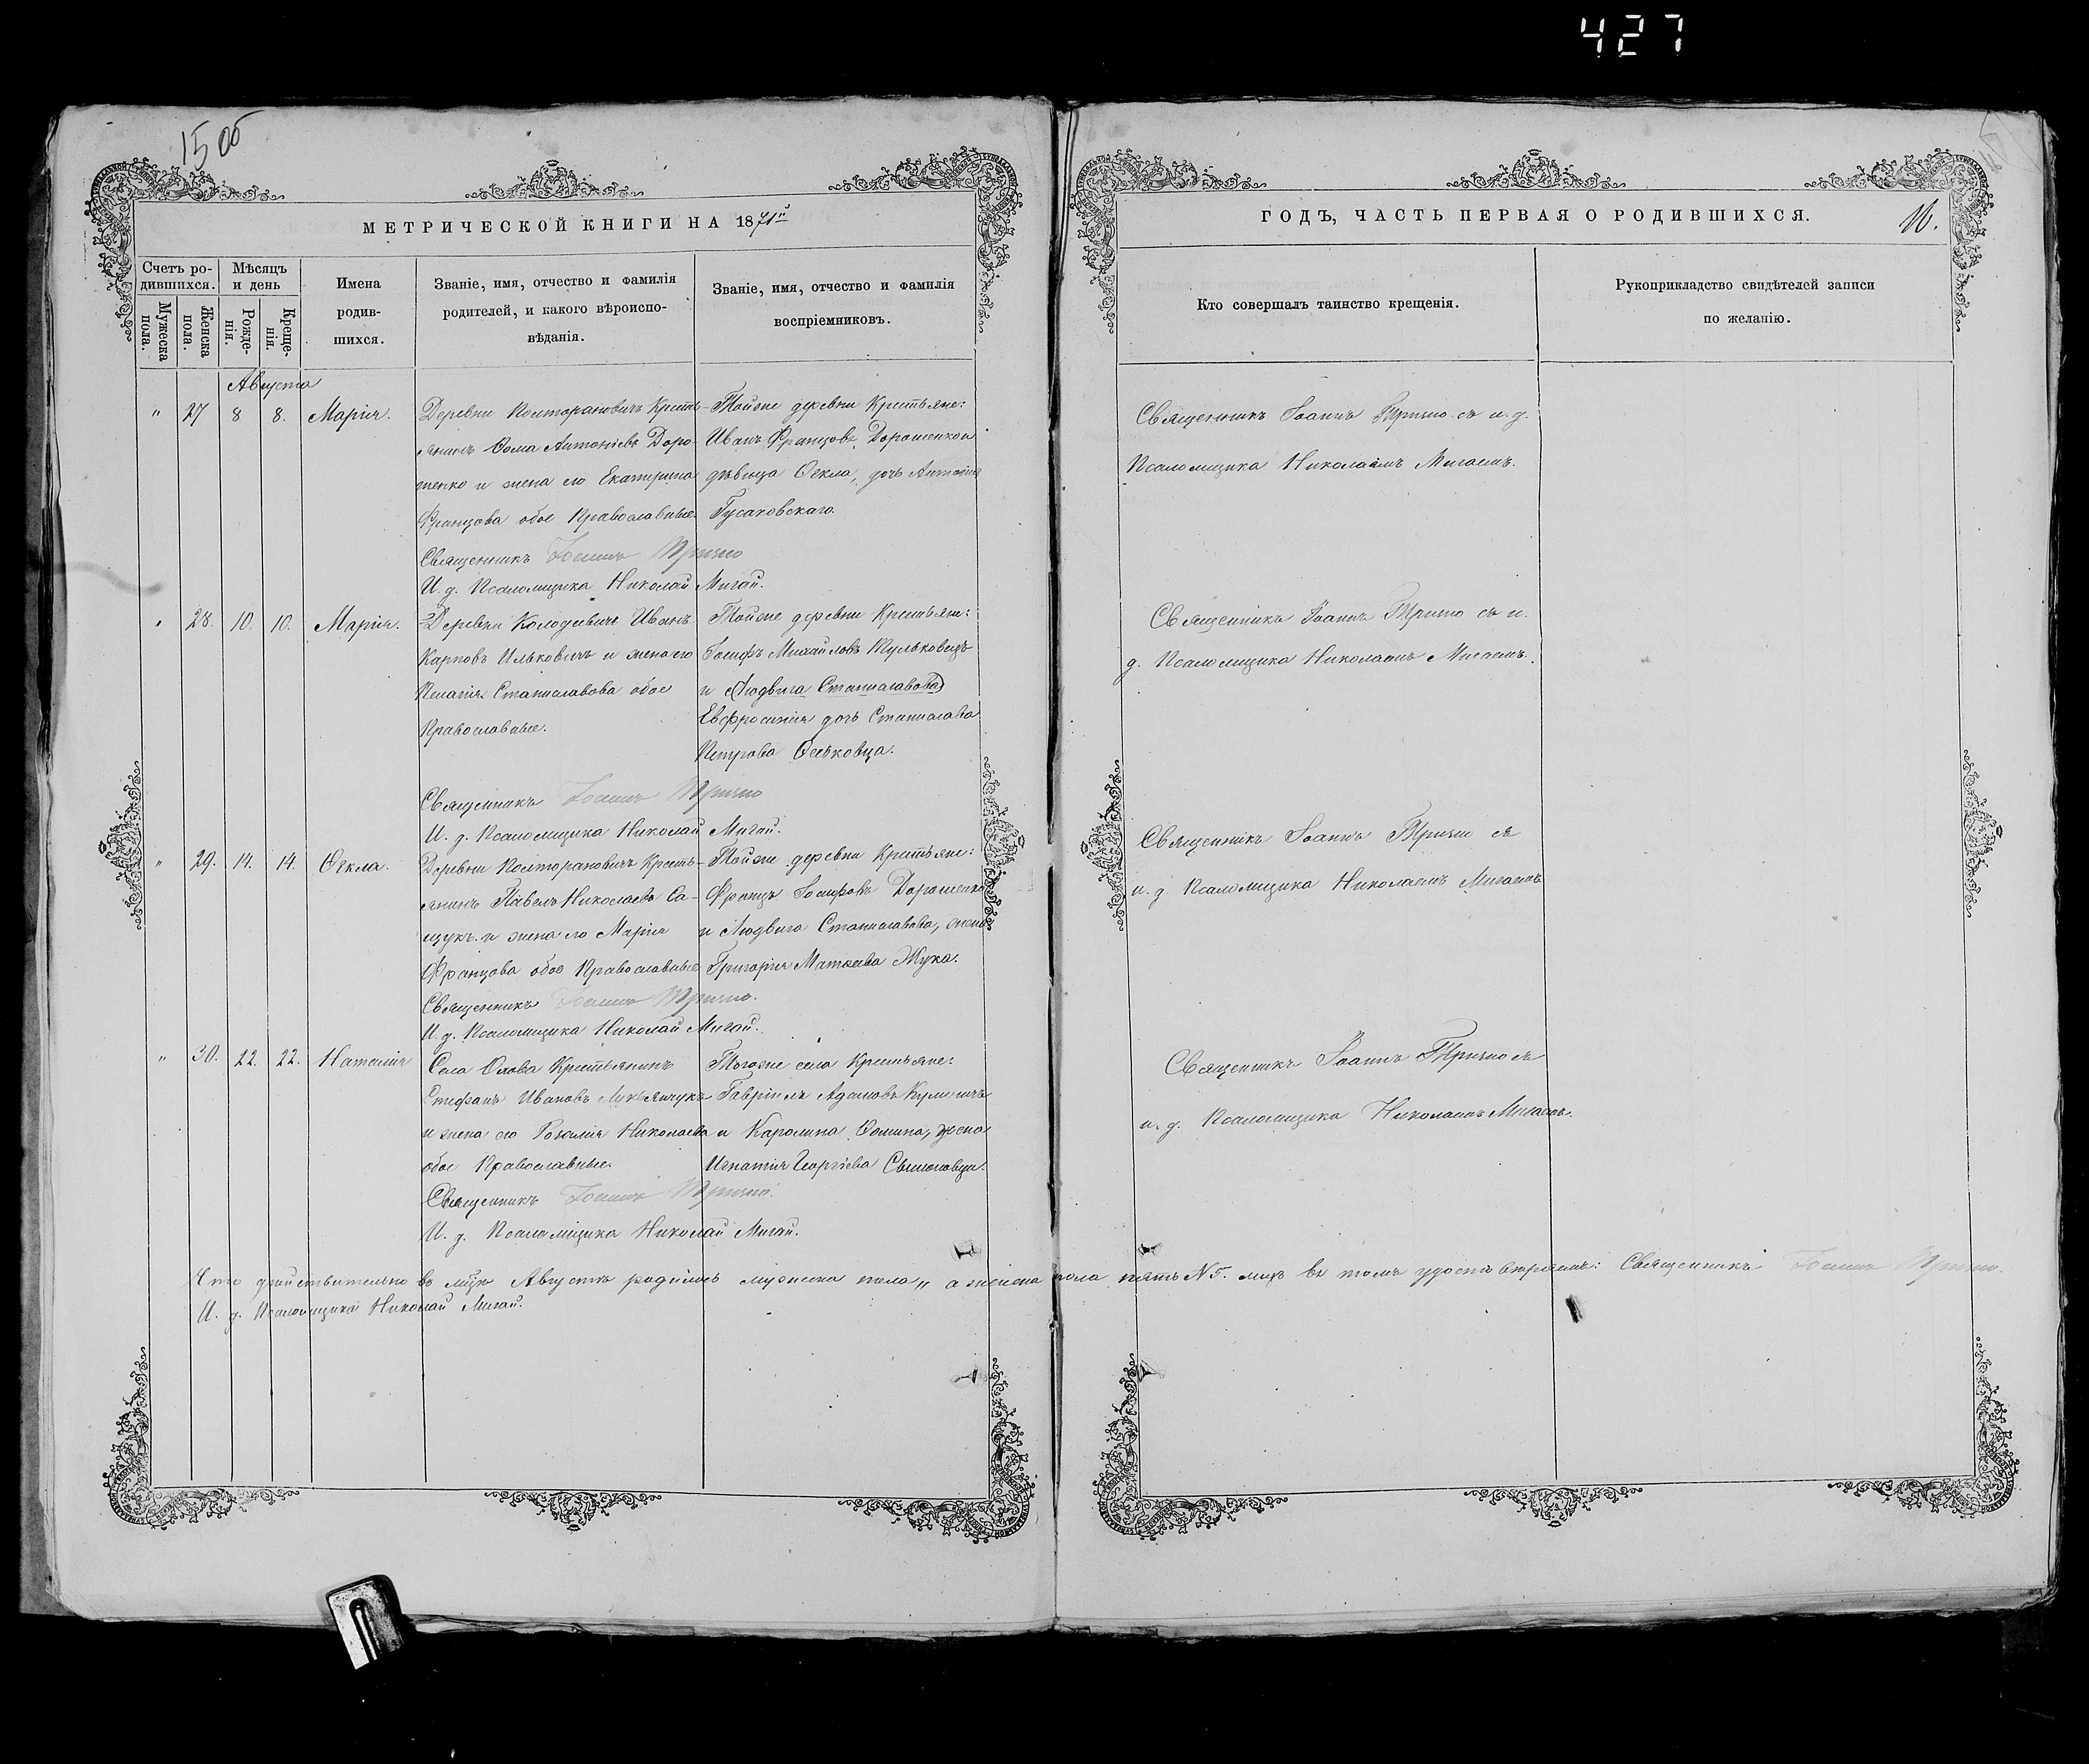 427
15 об
МЕТРИЧЕСКОЙ КНИГИ НА 1871й
Счетъ ро-
дившихся.
Мѣсяцъ
и день
Имена
родив-
шихся.
Званіе, имя, отчество и фамилія
родителей, и какого вѣроиспо-
вѣданія.
Званіе, имя, отчество и фамилія
воспріемниковъ.
Мужеска
пола.
Женска
пола.
Рожде-
нія.
Креще-
нія.
Августа
" 27 8 8. Марія.
Деревни Полторановичъ Кресть-
янинъ Ѳома Антоніевъ Доро-
шенко и жена его Екатерина
Францова обое Православные.
Тойже деревни Крестьяне:
Иванъ Францовъ Дорошенко и
дѣвица Ѳекла, дочь Антонія
Гусаковскаго.
Священникъ Іоаннъ
И. д. Псаломщика Николай Мигай.
" 28. 10. 10. Марія.
Деревни Колодевичъ Иванъ
Карповъ Ильковичъ и жена его
Пелагія Станиславова обое
Православные.
Тойже деревни Крестьяне:
Іосифъ Михайловъ
и (Людвига Станиславова)
Евфросинія дочь Станислава
Петрова
Священникъ Іоаннъ
И. д. Псаломщика Николай Мигай.
" 29. 14. 14. Ѳекла.
Деревни Полторановичъ Кресть-
янинъ Павелъ Николаевъ Са-
щукъ и жена его Марія
Францова обое Православные
Тойже деревни Крестьяне:
Францъ Іосифовъ Дорошенко
и Людвига Станиславова, жена
Григорія Матвѣева Жука.
Священникъ Іоаннъ
И. д. Псаломщика Николай Мигай.
" 30. 22. 22. Наталія
Села Крестьянинъ
Стефанъ Ивановъ Лукьянчукъ
и жена его Розалія Николаева
обое Православные.
Тогоже села Крестьяне:
Гавріилъ Адамовъ
и Каролина Ѳомина, жена
Игнатія Георгіева
Священникъ Іоаннъ
И. д. Псаломщика Николай Мигай.
Что дѣйствительно въ мцѣ Августѣ родилось мужеска пола " а женска пола пять №5. въ томъ удостовѣряемъ: Священникъ Іоаннъ
И. д. Псаломщика Николай Мигай.
ГОДЪ, ЧАСТЬ ПЕРВАЯ О РОДИВШИХСЯ.
16.
Кто совершалъ таинство крещенія.
Рукоприкладство свидѣтелей записи
по желанію.
Священникъ Іоаннъ съ и. д.
Псаломщика Николаемъ Мигаемъ.
Священникъ Іоаннъ съ и.
д. Псаломщика Николаемъ Мигаемъ.
Священникъ Іоаннъ съ
и. д. Псаломщика Николаемъ Мигаемъ
Священникъ Іоаннъ съ
и. д. Псаломщика Николаемъ Мигаемъ.